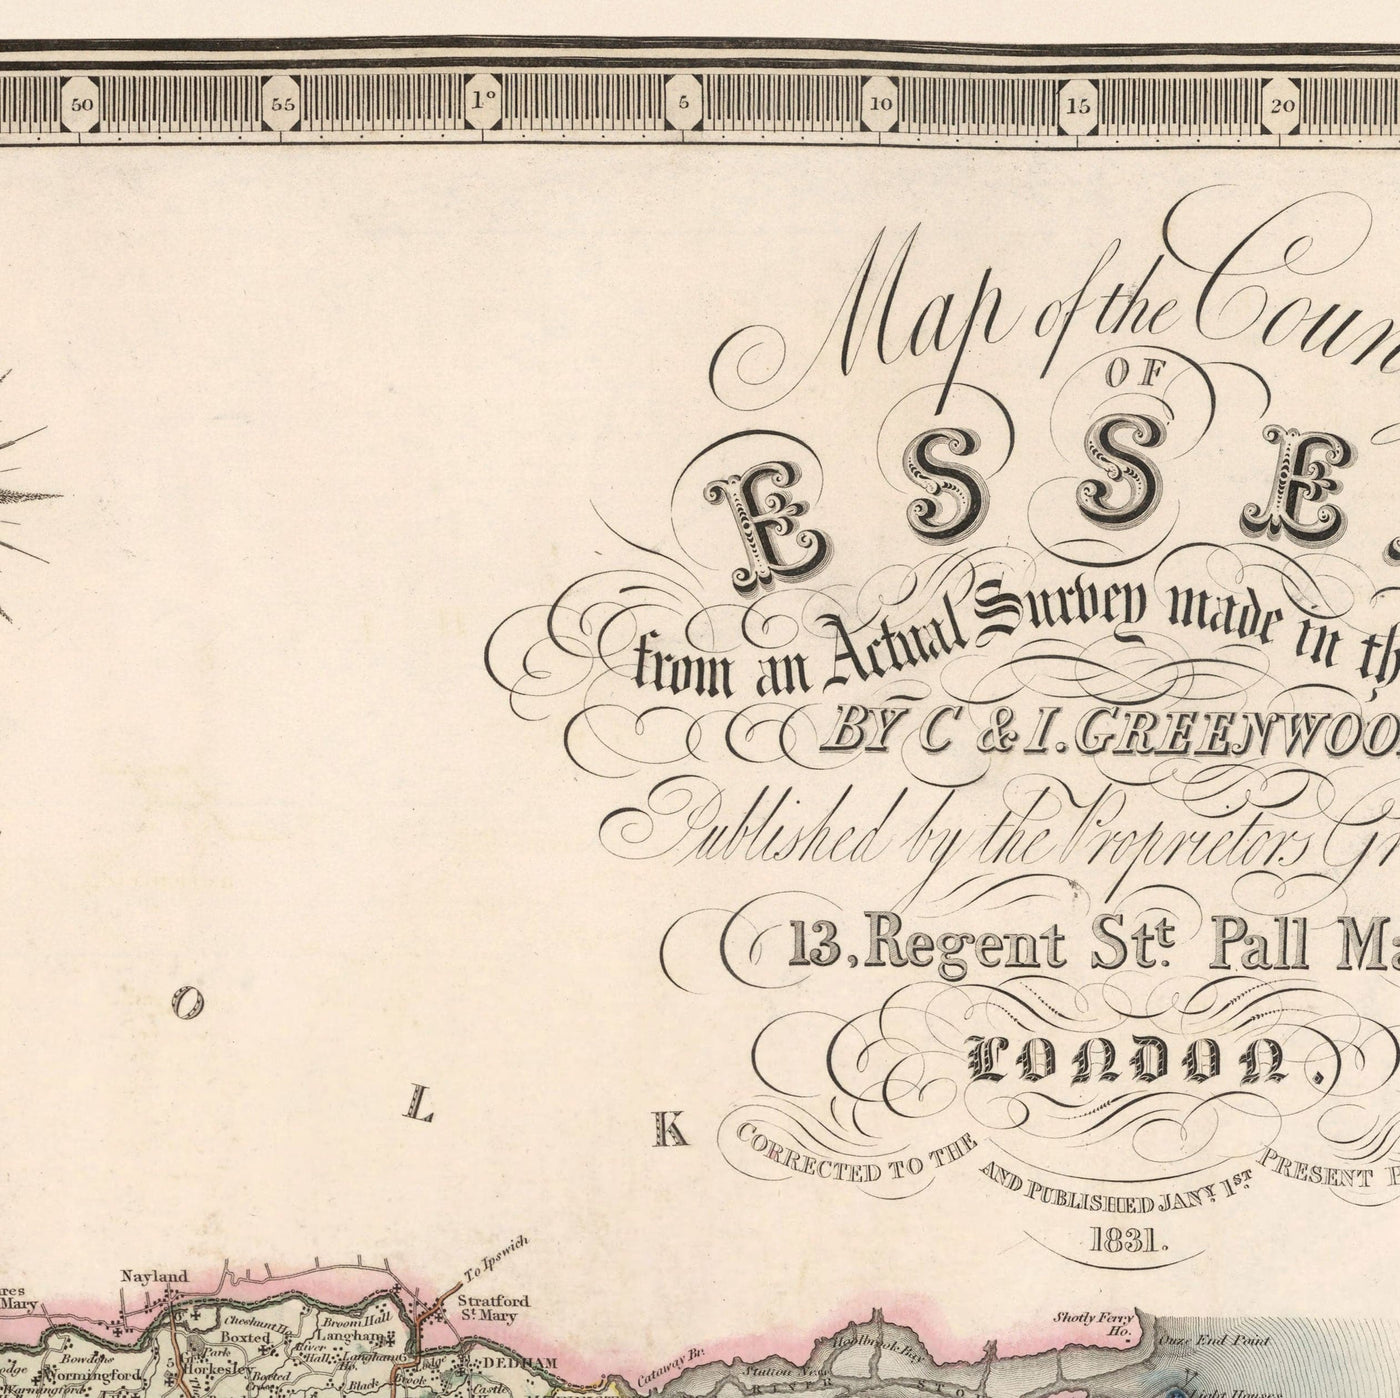 50 55 1° 5 10 15 20
Map of the Coun
OF
ESSE
from an Actual Survey made in th
BY C & I. GREENWOO
Published by the Proprietors Gr
13, Regent Stt. Pall Ma
LONDON,
O L K
CORRECTED TO THE PRESENT P
AND PUBLISHED JANY. 1ST
1831.
To Ipswich
Nayland
res
Mary
Stratford
St. Mary
Cheshunt H.
Broom Hall
Shotly Ferry
Ho.
Boxted
Langham
Holbrook Bay
Ouze End Point
Park
River
Hall
Langham
Ho.
Lodge
DEDHAM
Cataway Br.
Bowdens
Horkesley
Boxted
Stutton Ness
odge
Wormingford
Black
Brook
Castle
RIVER STO
Wormingford
Light House